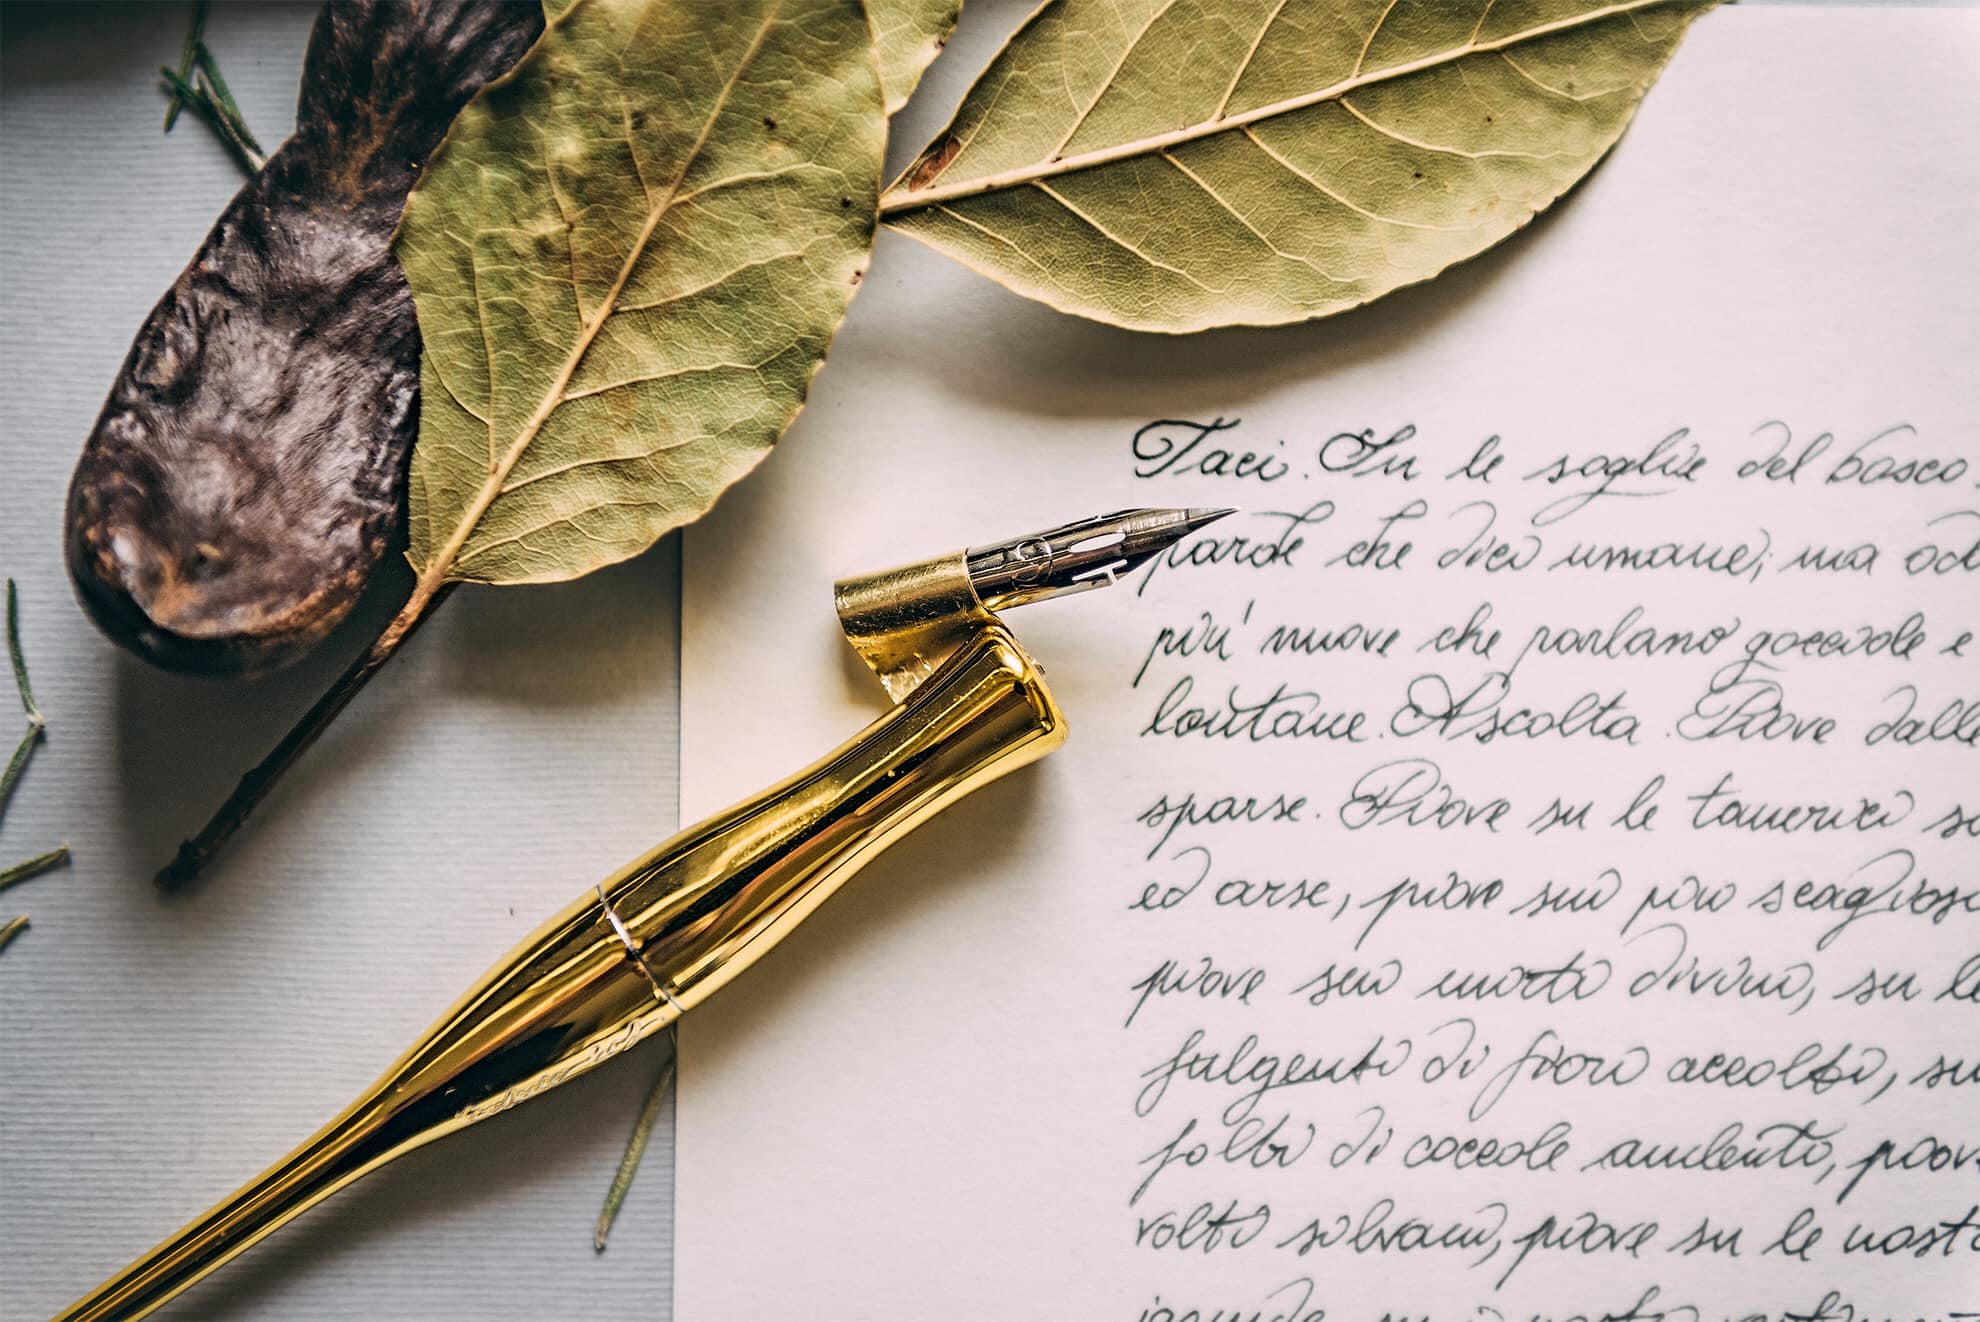 Taci. In le soglie del bosco
parole che dici umane; ma od
più nuove che parlano gocciole e
lontane. Ascolta. Piove dalle
sparse. Piove su le tamerici sa
ed arse, piove sui pini scaglios
piove sui mirti divini, su le
fulgenti di fiori accolti, su
folti di coccole aulenti, piov
volti silvani, piove su le nost
ignude, su i nostri vestiment